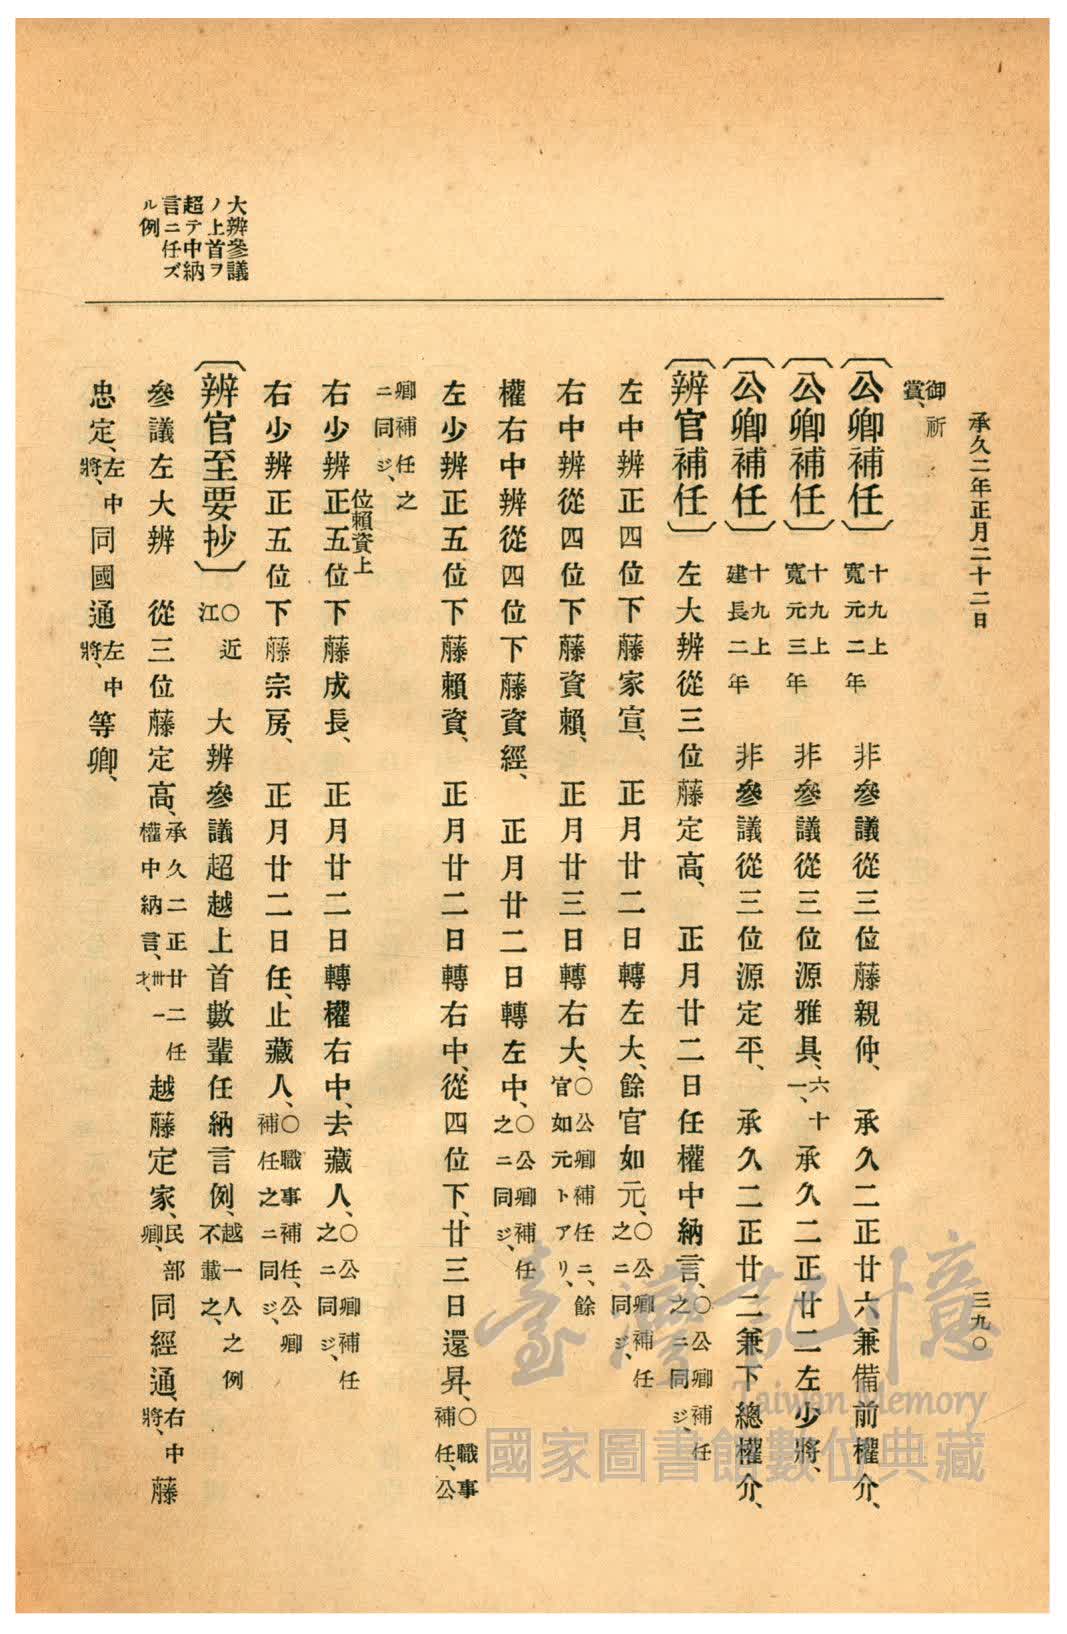 承久二年正月二十二日
三九〇
大辨參議
ノ上首ヲ
超テ中納
言ニ任ズ
ル例
御祈
賞、
〔公卿補任〕十九上寬元二年 非參議從三位藤親仲、承久二正廿六、兼備前權介、
〔公卿補任〕十九上寬元三年 非參議從三位源雅具、六十一、承久二正廿二左少將、
〔公卿補任〕十九上建長二年 非參議從三位源定平、承久二正廿二兼下總權介、
〔辨官補任〕左大辨從三位藤定高、正月廿二日任權中納言、〇公卿補任之ニ同ジ、
左中辨正四位下藤家宣、正月廿二日轉左大、餘官如元、〇公卿補任之ニ同ジ、
右中辨從四位下藤資賴、正月廿三日轉右大、〇公卿補任ニ、餘官如元トアリ、
權右中辨從四位下藤資經、正月廿二日轉左中、〇公卿補任之ニ同ジ、
左少辨正五位下藤賴資、正月廿二日轉右中、從四位下、廿三日還昇、〇職事補任、公
卿補任之ニ同ジ、
右少辨正五位下藤成長、位賴資上 正月廿二日轉權右中、去藏人、〇公卿補任之ニ同ジ、
右少辨正五位下藤宗房、正月廿二日任、止藏人、〇職事補任、公卿補任之ニ同ジ、
〔辨官至要抄〕〇近江 大辨參議超越上首數輩任納言例、越一人之例不載之、
參議左大辨 從三位藤定高、承久二正廿二任權中納言、卅一才、越藤定家、民部卿、同經通、右中將、藤
忠定、左中將、同國通左中將、等卿、
臺灣記憶
Taiwan Memory
國家圖書館數位典藏